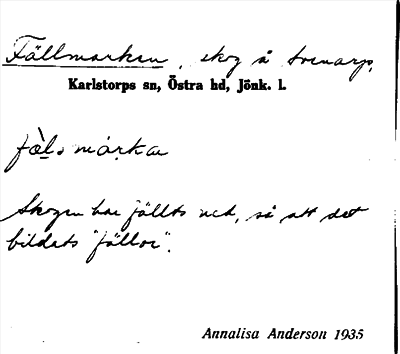 Fällmarken, skog å Svenarp,
Karlstorps sn, Östra hd, Jönk. l.
fæ̀l₀márka
Skogen har fällts ned, så att det
bildats "fällor".
Annalisa Anderson 1935